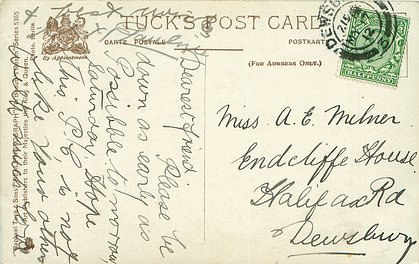 TUCK'S POST CARD
CARTE POSTALE
POSTKARTE
By Appointment
(FOR ADDRESS ONLY.)
Dearest friend
Please be
down as early as
Possible to morrow
Saturday. Hope
this P.C. is not
like your other
Miss A. E. Milner
Endcliffe House
Halifax Rd
Dewsbury
DEWSBURY
HALFPENNY